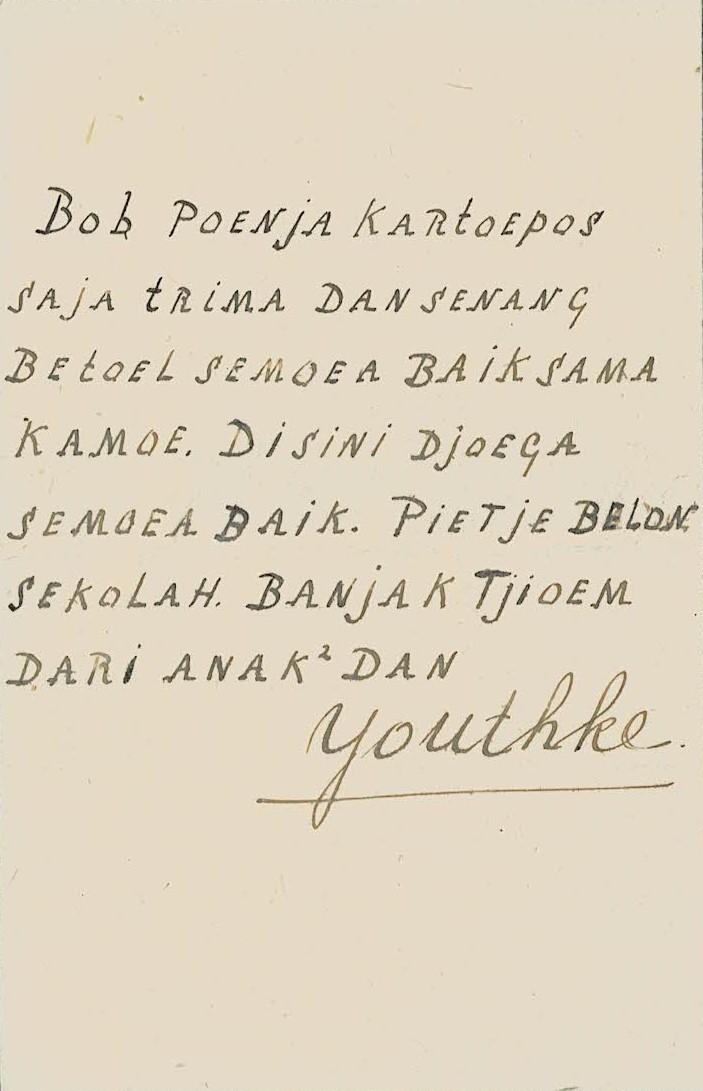 Bob POENjA KARtOEpOS
SAjA tRiMA DAN SENANG
BEtOEL SEMOEA BAiK SAMA
KAMOE. DiSiNi DjOEGA
SEMOEA BAiK. PiETjE BELON
SEKOLAH. BANjAK TjiOEM
DARi ANAK² DAN
Youthke.